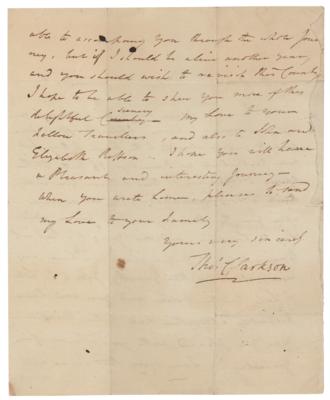 able to accompany you through the whole Jour
ney, but if I should be alive another year,
and you should wish to revisit this County
I hope to be able to shew you more of this
scenery
delightful Country — my Love to your
Fellow Travellers, and also to John and
Elizabeth Robson — I hope you will have
a Pleasant and interesting Journey —
When you write home, please to send
my Love to your Family
Yours very sincerely
Thos Clarkson